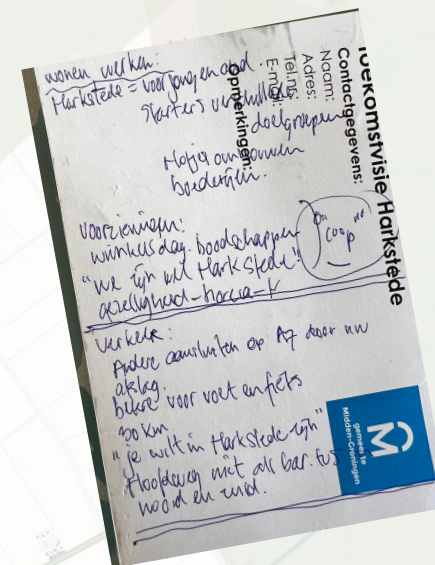 Toekomstvisie Harkstede
Contactgegevens:
Naam:
Adres:
Tel.nr:
E-mail:
Opmerkingen:
wonen werken:
Harkstede = voor jong en oud.
starters verschillende
doelgroepen
Hofjes ombouwen
boederijen.
Voorzieningen:
winkels dag. boodschappen
coop
"we zijn wel Harkstede"
gezelligheid - horeca
Verkeer:
Andere aansluiten op A7 door nw
afslag.
voor voet en fiets
30 km
"je wilt in Harkstede zijn"
Hoofdweg niet als bar.
noord en zuid.
gemeente
Midden-Groningen